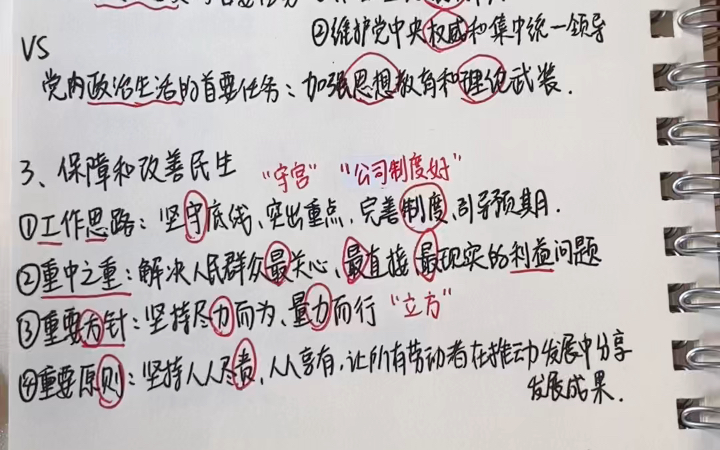 ②维护党中央权威和集中统一领导
VS
党内政治生活的首要任务：加强思想教育和理论武装.
3、保障和改善民生
"守宫" "公司制度好"
①工作思路：坚守底线、突出重点、完善制度、引导预期.
②重中之重：解决人民群众最关心、最直接、最现实的利益问题
③重要方针：坚持尽力而为、量力而行 "立方"
④重要原则：坚持人人尽责、人人享有，让所有劳动者在推动发展中分享
发展成果.